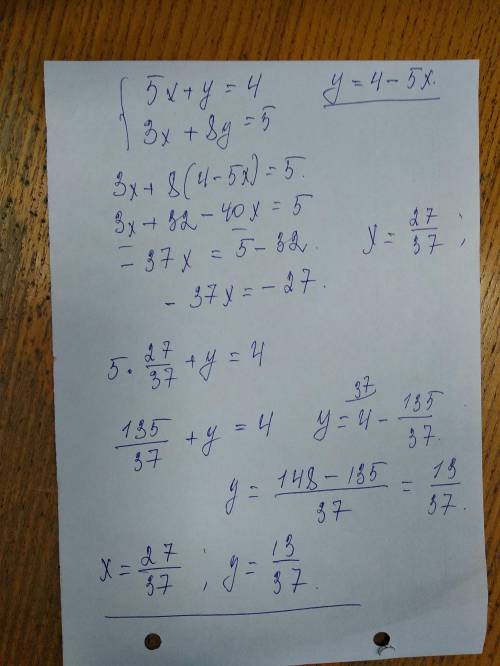 5x + y = 4    y = 4 - 5x.
3x + 8y = 5
3x + 8(4 - 5x) = 5.
3x + 32 - 40x = 5
- 37x = 5 - 32.    x = 27/37 ;
- 37x = - 27.
5 · 27/37 + y = 4
135/37 + y = 4    y = 4 37 - 135/37.
y = (148 - 135)/37 = 13/37.
x = 27/37 ; y = 13/37.